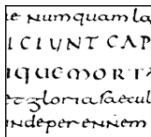 e numquam la
ICIUNT CAP
IQUEMORTA
et gloria faecul
indeperenniem